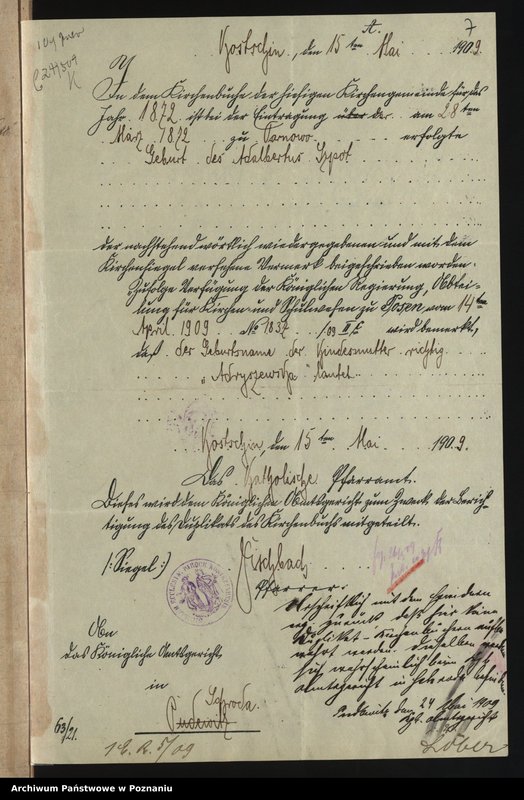 7
Kostschin, den 15 ten Mai 1909.
In dem Kirchenbuche der hiesigen Kirchengemeinde für das
Jahr 1872 ist bei der Eintragung über der am 28 ten
März 1872 zu Tarnowo erfolgte
Geburt des Adalbertus Szpot
der nachstehend wörtlich wiedergegebenen und mit dem
Kirchensiegel versehene Vermerk beigeschrieben worden:
Zufolge Verfügung der Königlichen Regierung, Abtei-
lung für Kirchen- und Schulwesen zu Posen vom 14 ten
April 1909 No 1837 /09 II E wird bemerkt,
daß der Geburtsname der Kindesmutter richtig
"Adryszewska" lautet.
Kostschin, den 15 ten Mai 1909.
Das Katholische Pfarramt.
Dieses wird dem Königlichen Amtsgericht zum Zweck der Berich-
tigung des Duplikats des Kirchenbuchs mitgeteilt.
/: Siegel :)
Fischbach
Pfarrer.
An
das Königliche Amtsgericht
in
Schroda.
Pudewitz
63/21.
1 E. R. 5/09
Urschriftlich mit dem
daß hier keine
Duplikat-Kirchenbücher
werden. Dieselben
sich wahrscheinlich beim
Amtsgericht in Schroda
Pudewitz den 24 Mai 1909
Kgl. Amtsgericht
Löber
Archiwum Państwowe w Poznaniu